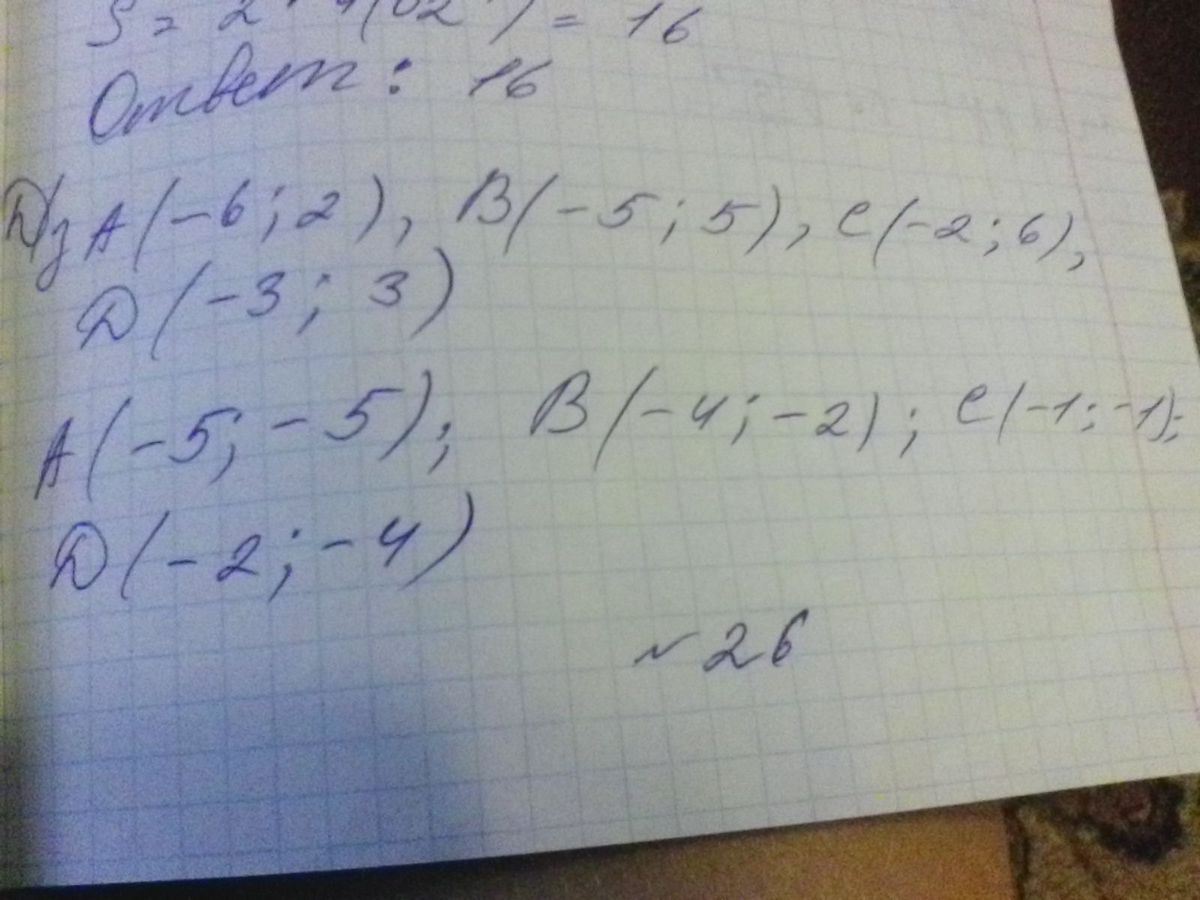 Ответ: 16
Д/з A(-6; 2), B(-5; 5), C(-2; 6),
D(-3; 3)
A(-5; -5); B(-4; -2); C(-1; -1);
D(-2; -4)
~ 26